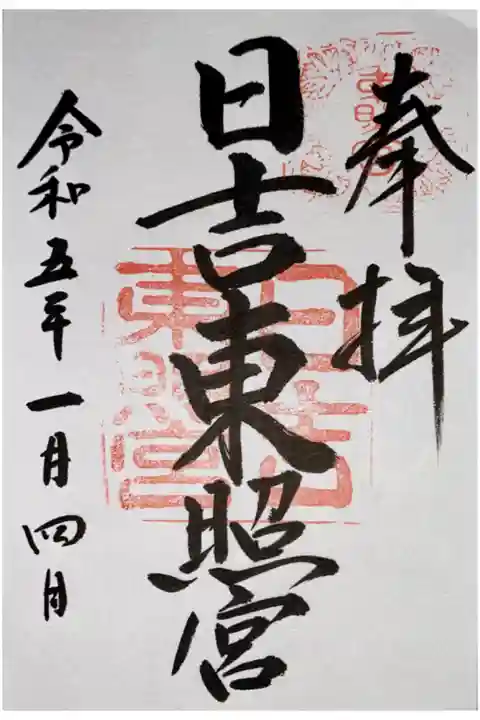 奉拝
日吉東照宮
令和五年一月四日
日吉
東照宮